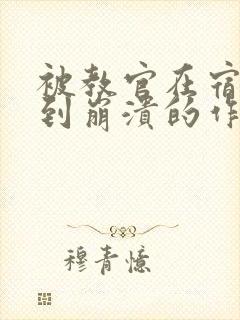 被教官在宿
到崩溃的作
穆青憶